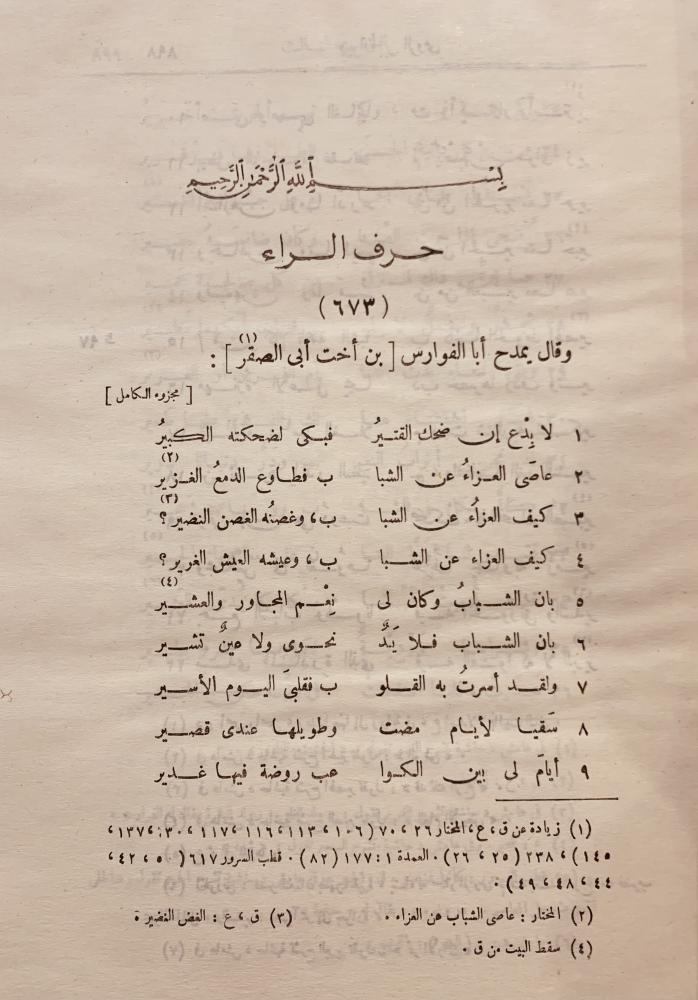 بِسْمِ ٱللَّهِ ٱلرَّحْمَٰنِ ٱلرَّحِيمِ
حرف الراء
( ٦٧٣ )
وقال يمدح أبا الفوارس [ بن أخت أبى الصقر (١) ] :
[ مجزوء الكامل ]
١ لا بِدْع إن ضحك القتيرُ فبكى لضحكته الكبيرُ
٢ عاصَى العزاءُ عن الشبا ب فطاوع الدمعُ الغزير (٢)
٣ كيف العزاُء عن الشبا ب، وغصنُه الغصن النضير ؟ (٣)
٤ كيف العزاء عن الشبا ب ، وعيشه العيش الغرير ؟
٥ بان الشبابُ وكان لى نِعْم المجاور والعشير (٤)
٦ بان الشباب فلا يَدٌ نحوى ولا عينٌ تشير
٧ ولقد أسرتُ به القلو ب فقلبىَ اليوم الأسير
٨ سَقيا لأيام مضت وطويلها عندى قصير
٩ أيامَ لى بين الكوا عب روضة فيها غدير
(١) زيادة عن ق ، ع ، المختار ٢٦ ، ٧٠ ( ١٠٦ ، ١١٣ ، ١١٦ ، ١١٧ ، ١٣٠ ، ١٣٧ ،
١٤٥ ) ، ٢٣٨ ( ٢٥ ، ٢٦ ) . العمدة ١ : ١٧٧ ( ٨٢ ) . قطب السرور ٦١٧ ( ٥ ، ٤٢ ،
٤٤ ، ٤٨ ، ٤٩ ) .
(٢) المختار : عاصى الشباب عن العزاء . (٣) ق ، ع : الغض النضير ة
(٤) سقط البيت من ق .